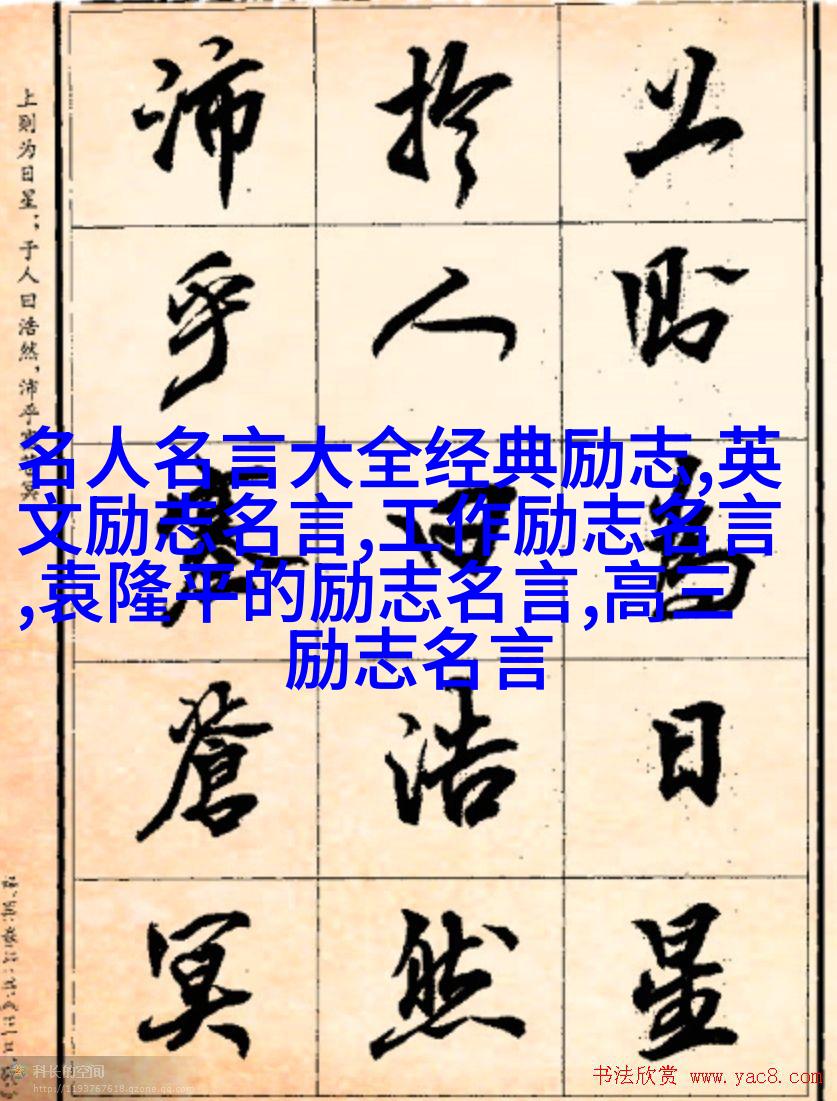 上則為日星
於人曰浩然
沛乎塞蒼冥
上则为日星；于人曰浩然，沛乎塞苍冥
名人名言大全经典励志,英
文励志名言,工作励志名言
,袁隆平的励志名言,高三
励志名言
科长的空间
http://1193767618.qzone.qq.com
书法欣赏 www.yac8.com